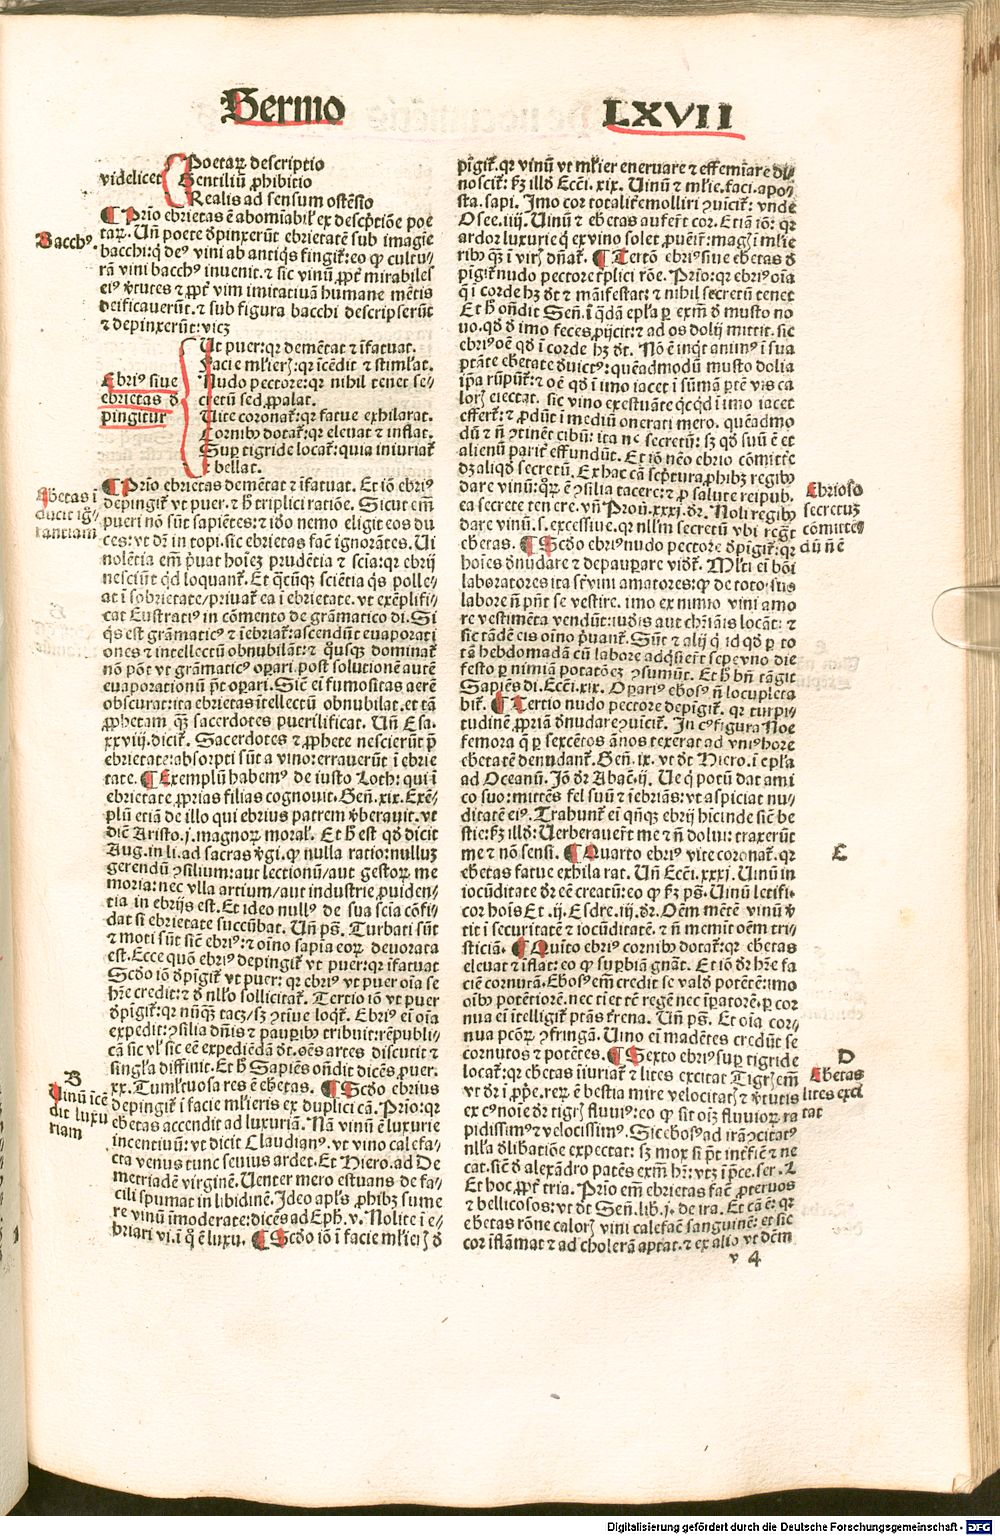 Sermo LXVII
Poetaꝝ descriptio
videlicet Gentiliū ꝓhibitio
Realis ad sensum ostēsio
¶ Prīo ebrietas ē abomīabilꝭ ex descp̄tiōe poe
taꝝ. Un̄ poete dꝫpinxerūt ebrietatē sub imagīe
bacchi: q̄ deꝰ vini ab antiq̄s fingit̄: eo ꝙ cultu-
rā vini bacchꝰ inuenit. ⁊ sic vinū ꝓpt̄ mirabiles
eiꝰ v̄tutes ⁊ ꝓpt̄ vim imitatiuā humane mētis
deificauerūt. ⁊ sub figura bacchi descripserūt
⁊ depinxerūt: vicꝫ
Bacchꝰ.
Ut puer: qꝛ demētat ⁊ īfatuat.
Facie ml̄ierꝭ: qꝛ īcēdit ⁊ stiml̄at.
Nudo pectore: qꝛ nihil tenet se-
cretū sed ꝓpalat.
Uite coronat̄: qꝛ fatue exhilarat.
Cornibꝰ dotat̄: qꝛ eleuat ⁊ inflat.
Suꝑ tigride locat̄: quia iniuriat̄
⁊ bellat.
Ebriꝰ siue
ebrietas d̄
pingitur
¶ Prīo ebrietas demētat ⁊ īfatuat. Et iō ebriꝰ
depingit̄ vt puer. ⁊ h̄ triplici ratiōe. Sicut em̄
pueri nō sūt sapiētes: ⁊ iō nemo eligit eos du
ces: vt dꝫ in topi. sic ebrietas facīt ignorātes. Ui
nolētia em̄ p̄uat hoīeꝫ prudētia ⁊ scīa: qꝛ ebrij
nesciūt qd̄ loquant̄. Et q̄cūqꝫ sciētia q̄s polle-
at ī sobrietate / priuat̄ ea ī ebrietate. vt exēplifi-
cat Eustratiꝰ in cōmento de grāmatico di. Si
q̄s est grāmaticꝰ ⁊ īebriat̄: ascendūt euaporati
ones ⁊ intellectū obnubilāt: ⁊ q̄usqꝫ dominat̄
nō pōt vt grāmaticꝰ oꝑari. post solutionē autē
euaporationū p̄t oꝑari. Sic ei̇ fumositas aerē
obscurat: ita ebrietas ītellectū obnubilat. et tā
ꝓphetam q̄ꝫ sacerdotes puerilificat. Un̄ Esa.
xxviij. dicit̄. Sacerdotes ⁊ ꝓphete nescierūt p̄
ebrietate: absorpti sūt a vino: errauerūt ī ebrie
tate. ¶ Exemplū habemꝰ de iusto Loth: qui ī
ebrietate ꝓprias filias cognouit. Gen̄. xix. Exē-
plū etiā de illo qui ebrius patrem v̄berauit. vt
dic̄ Aristo. j. magnoꝝ moral̄. Et h̄ est qd̄ dicit
Aug. in li. ad sacras v̄gi. ꝙ nulla ratio: nulluꝫ
gerendū ꝯsilium: aut lectionū / aut gestoꝝ me
moria: nec vlla artium / aut industrie ꝓuiden-
tia in ebrijs est. Et ideo nullꝰ de sua scīa cōfi-
dat si ebrietate succūbat. Un̄ ps̄. Turbati sūt
⁊ moti sūt sic ebriꝰ: ⁊ oīno sapīa eoꝝ deuorata
est. Ecce quō ebriꝰ depingit̄ vt puer: qꝛ īfatuat
Scd̄o iō d̄pīgit̄ vt puer: qꝛ ebriꝰ vt puer oīa se
hr̄e credit: ⁊ d̄ nll̄o sollicitat̄. Tertio iō vt puer
d̄pīgit̄: qꝛ nūq̄ꝫ tacꝫ / sꝫ ꝯtīue loq̄t̄. Ebriꝰ ei̇ oīa
expedit: ꝯsilia dn̄is ⁊ pauꝑibꝰ tribuit: rēpubli-
cā sic vl̄ sic eē expediēdā dt̄. oēs artes discutit ⁊
singl̄a diffinit. Et h̄ Sapiēs on̄dit dicēs ꝓuer.
xx. Tuml̄tuosa res ē eb̄etas. ¶ Scd̄o ebrius
depingit̄ ī facie ml̄ieris ex duplici cā. Prīo: qꝛ
eb̄etas accendit ad luxuriā. Nā vinū ē luxurie
incentiuū: vt dicit Claudianꝰ. vt vino calefa-
cta venus tunc seuius ardet. Et Hiero. ad De
metriadē virginē. Uenter mero estuans de fa-
cili spumat in libidinē. Ideo apl̄s ꝓhibꝫ sume
re vinū īmoderate: dicēs ad Eph. v. Nolite ī e-
briari vi. ī q̄ ē luxu. ¶ Scd̄o iō ī facie ml̄ierꝭ d̄
Eb̄etas ī
ducit ig-
rantiam
B
Uinū icē
dit luxu
riam
pīgit̄. qꝛ vinū vt ml̄ier eneruare ⁊ effemīare di-
noscit̄: ẜꝫ illd̄ Ecc̄i. xix. Uinū ⁊ ml̄ie. faci. apo-
sta. sapi. Imo cor totalit̄ emolliri ꝯuicit̄: vnde
Osee. iiij. Uinū ⁊ eb̄etas aufer̄t cor. Etiā iō: qꝛ
ardor luxurie q̄ ex vino solet ꝓueīr̄: magꝭ ī ml̄ie
ribꝰ q̄ꝫ ī virꝭ dn̄at̄. ¶ Tertō ebriꝰ siue eb̄etas d̄
pīgit̄ nudo pectore t̄plici rōe. Prīo: qꝛ ebriꝰ oīa
q̄ ī corde hꝫ dt̄ ⁊ māifestat: ⁊ nihil secretū tenet
Et h̄ on̄dit Sen̄. ī q̄dā epl̄a ꝑ exm̄ d̄ musto no
uo. qd̄ d̄ imo feces ꝓijcit: ⁊ ad os dolij mittit. sic
ebriꝰ oē qd̄ ī corde hꝫ dt̄. Nō ē inq̄t animꝰ ī sua
ptāte eb̄etate d̄uictꝰ: quēadmodū musto dolia
ip̄a rūpūt̄: ⁊ oē qd̄ ī imo iacet ī sūmā ꝑtē vis ca
lorꝭ eiectat. sic vino exestuāte q̄cqd̄ ī imo iacet
effert̄: ⁊ ꝓdūt ī mediū onerati mero. quēadmo
dū ⁊ n̄ ꝯtinēt cibū: ita ne secretū: sꝫ qd̄ suū ē et
alienū parit̄ effundūt. Et iō nēo ebrio cōmitt̄e
dꝫ aliqd̄ secretū. Ex hac cā scp̄tura ꝓhibꝫ regibꝰ
dare vinū: qꝝ ē ꝯsilia tacere: ⁊ ꝓ salute reipub.
ea secrete tenere. vn̄ Prou. xxxi. dr̄. Noli regibꝰ
dare vinū. s. excessiue. qꝛ nll̄m secretū vbi regt̄
eb̄etas. ¶ Scd̄o ebriꝰ nudo pectore d̄pīgit̄: qꝛ
hoīes d̄nudare ⁊ depauꝑare vidt̄. Ml̄ti ei̇ bōi
laboratores ita sr̄t vini amatores: ꝙ de toto suo
labore n̄ pn̄t se vestire. imo ex nimio vini amo
re vestimēta vendūt: iudꝭis aut christianis locāt: ⁊
sic tādē eis oīno p̄uant̄. Sūt ⁊ alij q̄ id qd̄ ꝑ to
tā hebdomadā cū labore adq̄sier̄t sepe vno die
festo ꝑ nimiā potatōeꝫ ꝯsumūt. Et h̄ bn̄ tāgit
Sapiēs di. Ecc̄i. xix. Oꝑariꝰ eb̄osꝰ n̄ locupleta
bit̄. ¶ Tertio nudo pectore depīgit̄. qꝛ turpi-
tudinē ꝓpriā d̄nudare ꝯuicit̄. In cꝰ figura Noe
femora q̄ ꝑ sexcētos ānos texerat ad vniꝰ hore
eb̄etatē denudant̄. Gen̄. ix. vt dt̄ Hiero. ī epl̄a
ad Oceanū. Iō dr̄ Abac. ij. Ue q̄ potū dat ami
co suo: mittēs fel suū ⁊ īebriās: vt aspiciat nu-
ditatē eiꝰ. Trahunt̄ ei̇ qn̄qꝫ ebrij hicinde sic be
stie: ẜꝫ illd̄: Uerberauer̄t me ⁊ n̄ dolui: traxerūt
me ⁊ nō sensi. ¶ Quarto ebriꝰ vite coronat̄. qꝛ
eb̄etas fatue exhilarat. Un̄ Ecc̄i. xxxj. Uinū in
iocūditate dr̄ eē creatū: eo ꝙ ẜꝫ ps̄. Uinū letifi-
cor hoīs Et. ij. Esdre. iij. dr̄. Oēm mētē vinū v̄
tit ī securitatē ⁊ iocūditatē. ⁊ n̄ memit oēm tri-
sticiā. ¶ Quīto ebriꝰ cornibꝰ dotat̄: qꝛ eb̄etas
eleuat ⁊ īflat: eo ꝙ suꝑbiā gn̄at. Et iō dr̄ hr̄e fa
ciē cornutā. Eb̄osꝰ em̄ credit se valdꝫ potētē: imo
oībꝰ potētiorē. nec tiet tē regē nec īꝑatorē. ꝑ cor
nua ei̇ ītelligit̄ ptās t̄rena. Un̄ ps̄. Et oīa cor-
nua pcōꝝ ꝯfringā. Uino ei̇ madētes credūt se
cornutos ⁊ potētes. ¶ Sexto ebriꝰ suꝑ tigride
locat̄: qꝛ eb̄etas īiuriat̄ ⁊ lites excitat Tigrꝭ em̄
vt dr̄ ī ꝓpe. reꝝ ē bestia mire velocitatꝭ ⁊ v̄tutis
ex cꝰ noīe dr̄ tigrꝭ fluuiꝰ: eo ꝙ sit oīꝫ fluuioꝝ ra
pidissimꝰ ⁊ velocissimꝰ. Sic eb̄osꝰ ad irā ꝯcitatꝰ
nll̄a d̄libatiōe expectat: sꝫ mox si p̄t īnt̄fic̄ ⁊ ne
cat. sic d̄ alexādro patēs exm̄ hr̄: vtꝫ ī p̄ce. ser. L
Et hoc ꝓpt̄ tria. Prīo em̄ ebrietas fac̄ ꝓteruos
⁊ bellicosos: vt dt̄ Sen̄. lib. j. de ira. Et cā ē: qꝛ
ebetas rōne calorꝭ vini calefac̄ sanguinē: et sic
cor īflāmat ⁊ ad cholerā aptat. ⁊ ex alio vt dc̄m
Ebrioso
secretuꝫ
cōmittē
dū n̄ ē
C
D
Eb̄etas
lites exci
tat
v 4
Digitalisierung gefördert durch die Deutsche Forschungsgemeinschaft - DFG